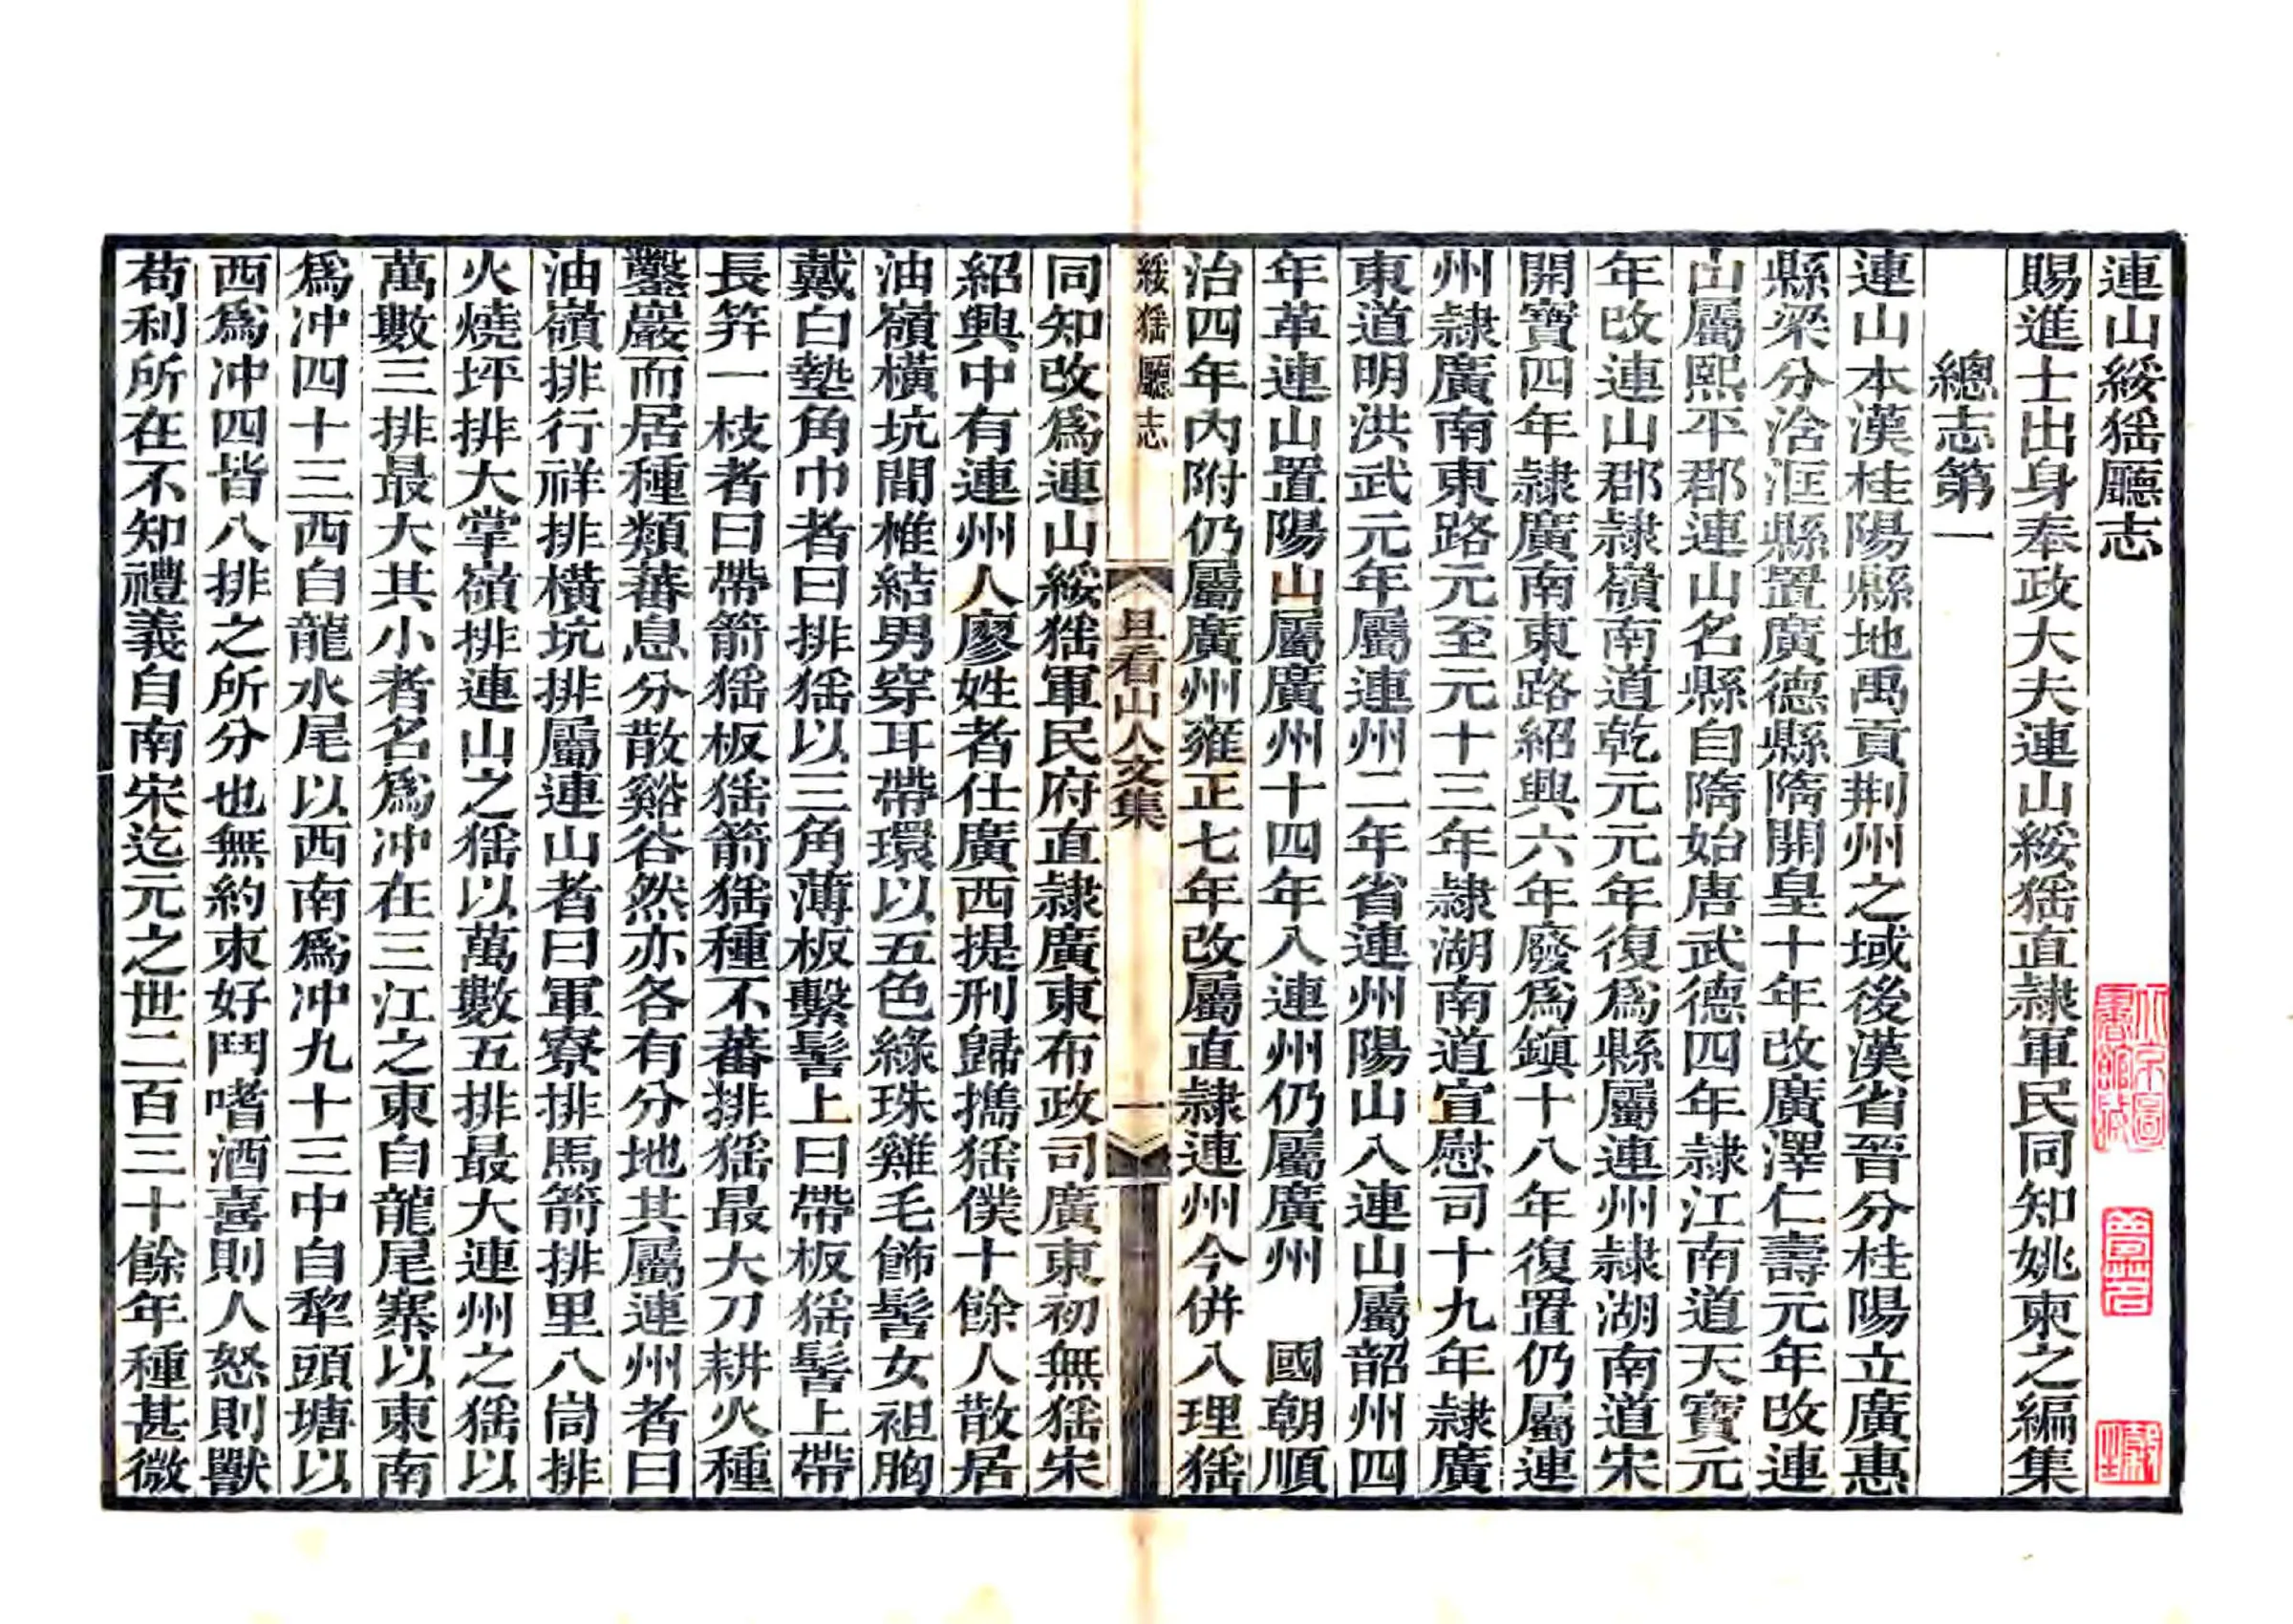 連山綏猺廳志
賜進士出身奉政大夫連山綏猺直隷軍民同知姚柬之編集
總志第一
連山本漢桂陽縣地禹貢荆州之域後漢省晉分桂陽立廣惠
縣梁分浛洭縣置廣德縣隋開皇十年改廣澤仁壽元年改連
山屬熙平郡連山名縣自隋始唐武德四年隷江南道天寶元
年改連山郡隷嶺南道乾元元年復爲縣屬連州隷湖南道宋
開寶四年隷廣南東路紹興六年廢爲鎮十八年復置仍屬連
州隷廣南東路元至元十三年隷湖南道宣慰司十九年隷廣
東道明洪武元年屬連州二年省連州陽山入連山屬韶州四
年革連山置陽山屬廣州十四年入連州仍屬廣州　國朝順
治四年內附仍屬廣州雍正七年改屬直隷連州今併入理猺
綏猺廳志
且看山人文集
一
同知改爲連山綏猺軍民府直隷廣東布政司廣東初無猺宋
紹興中有連州人廖姓者仕廣西提刑歸攜猺僕十餘人散居
油嶺橫坑間椎結男穿耳帶環以五色綠珠雞毛飾髻女袒胸
戴白墊角巾者曰排猺以三角薄板繫髻上曰帶板猺髻上帶
長笄一枝者曰帶箭猺板猺箭猺種不蕃排猺最大刀耕火種
鑿巖而居種類蕃息分散谿谷然亦各有分地其屬連州者曰
油嶺排行祥排橫坑排屬連山者曰軍寮排馬箭排里八峝排
火燒坪排大掌嶺排連山之猺以萬數五排最大連州之猺以
萬數三排最大其小者名爲冲在三江之東自龍尾寨以東南
爲冲四十三西自龍水尾以西南爲冲九十三中自犂頭塘以
西爲冲四皆八排之所分也無約束好鬥嗜酒喜則人怒則獸
苟利所在不知禮義自南宋迄元之世二百三十餘年種甚微